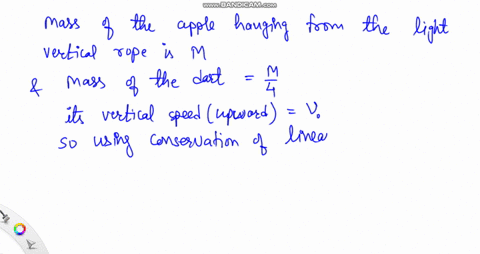 www.BANDICAM.com
mass of the apple hanging from the light
vertical rope is M
& mass of the dart = M/4
its vertical speed (upward) = V₀
so using conservation of linea